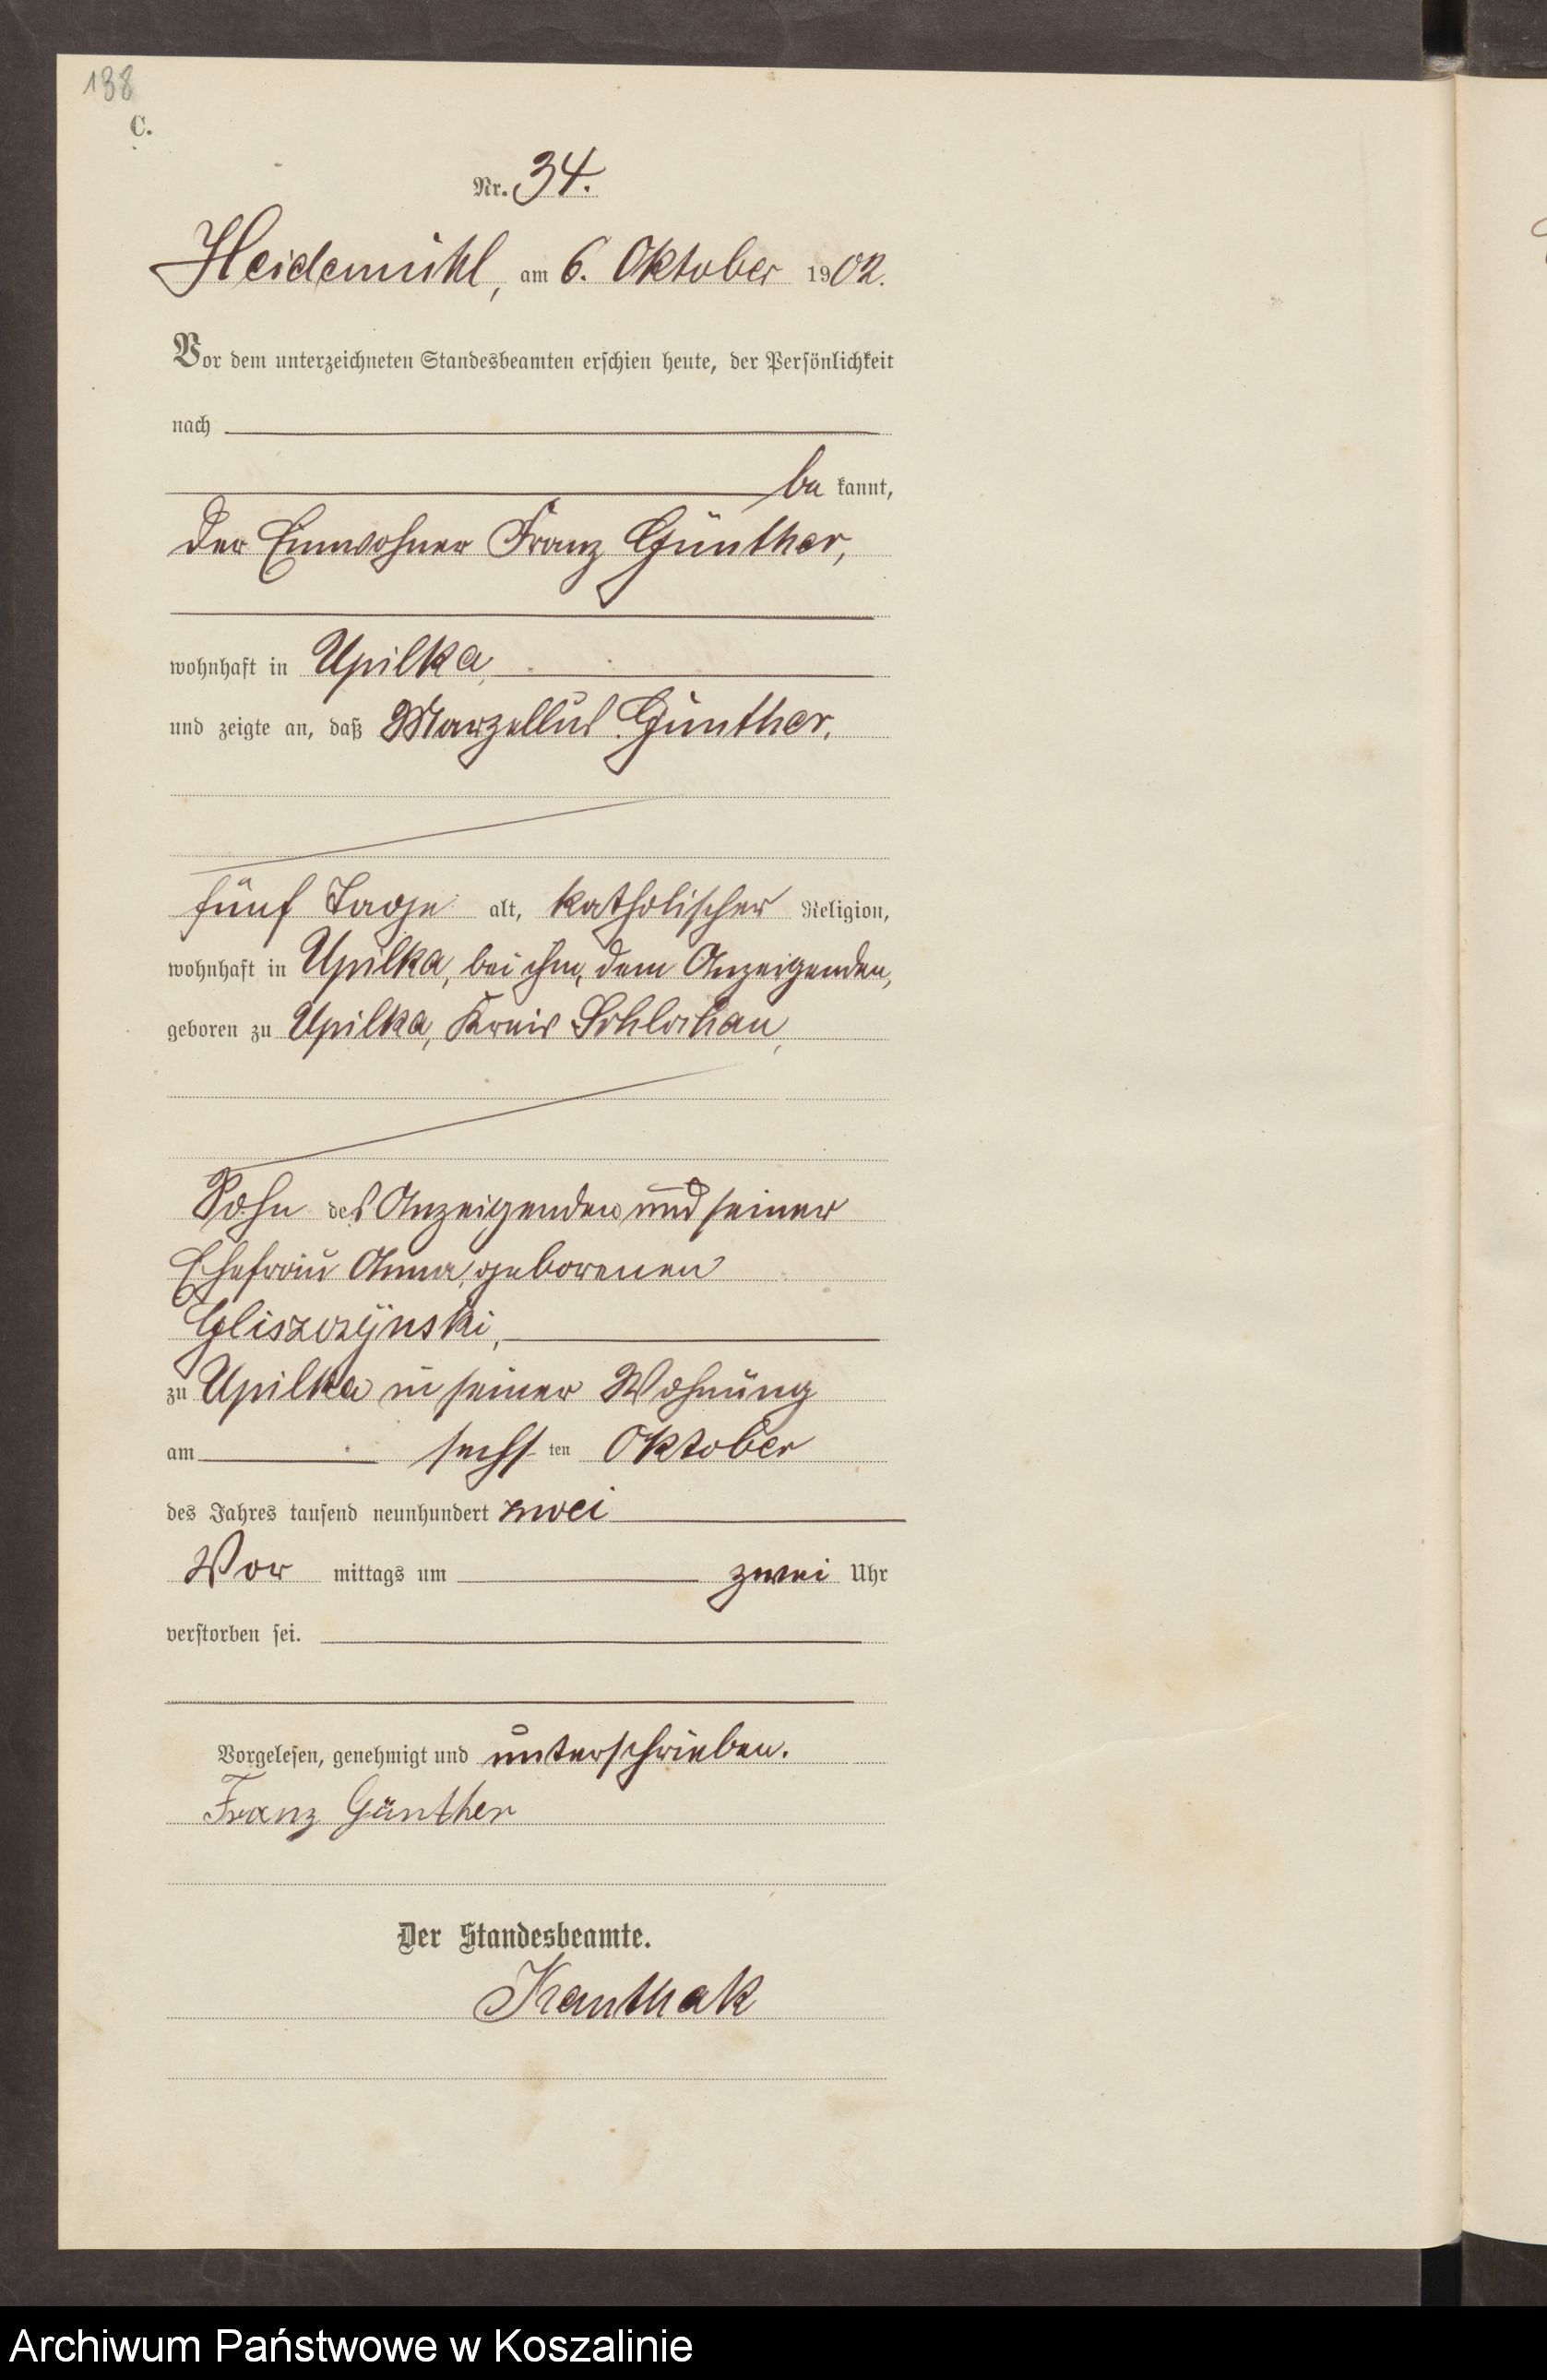 138
C.
Nr. 34.
Heidemühl, am 6. Oktober 1902.
Vor dem unterzeichneten Standesbeamten erschien heute, der Persönlichkeit
nach
be kannt,
der Einwohner Franz Günther,
wohnhaft in Upilka,
und zeigte an, daß Marzellus Günther,
fünf Tage alt, katholischer Religion,
wohnhaft in Upilka, bei ihm, dem Anzeigenden,
geboren zu Upilka, Kreis Schlochau,
Sohn des Anzeigenden und seiner
Ehefrau Anna, geborenen
Gliszczynski,
zu Upilka in seiner Wohnung
am sechs ten Oktober
des Jahres tausend neunhundert zwei
Vor mittags um zwei Uhr
verstorben sei.
Vorgelesen, genehmigt und unterschrieben.
Franz Günther
Der Standesbeamte.
Kanthak
Archiwum Państwowe w Koszalinie